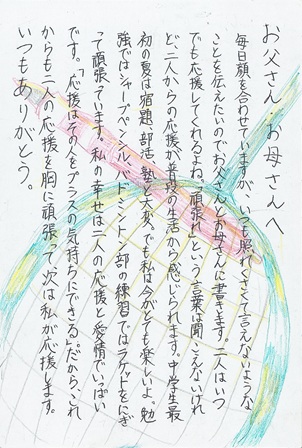 お父さん・お母さんへ
毎日顔を合わせていますが、いつも照れくさくて言えないような
ことを伝えたいのでお父さんとお母さんに書きます。二人はいつ
でも応援してくれるよね。「頑張れ」という言葉は聞こえないけれ
ど、二人からの応援が普段の生活から感じられます。中学生最
初の夏は宿題、部活、塾と大変。でも私は今がとても楽しいよ。勉
強ではシャープペンシル、バドミントン部の練習ではラケットをにぎ
って頑張っています。私の幸せは二人の応援と愛情でいっぱい
です。「応援はその人をプラスの気持ちにできる」。だから、これ
からも二人の応援を胸に頑張って次は私が応援します。
いつもありがとう。